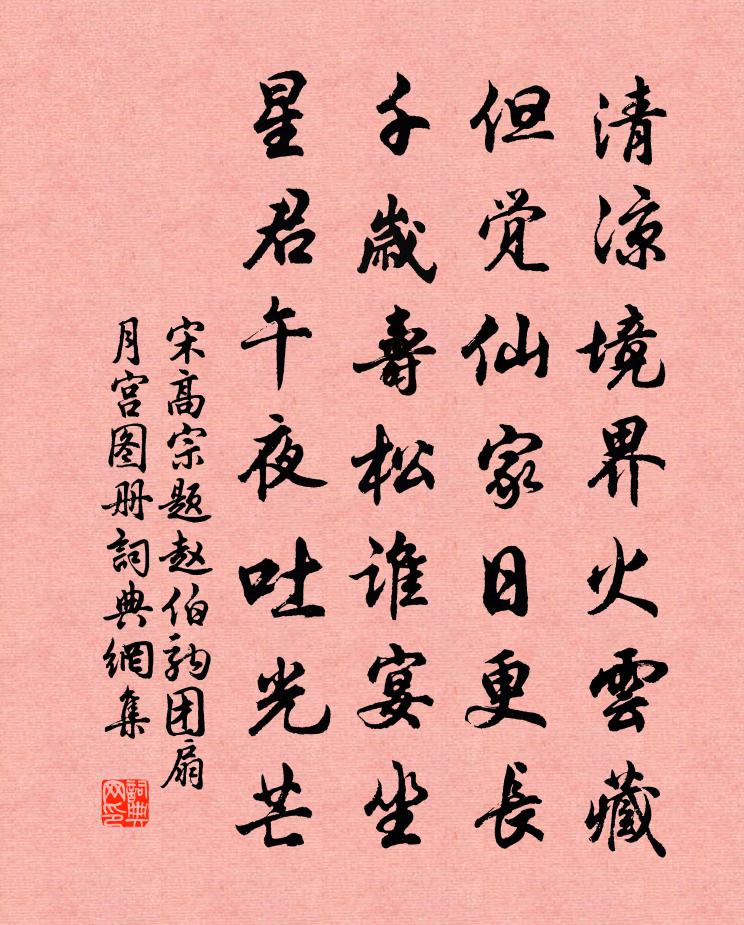 清涼境界火雲藏
但觉仙家日更長
千歲壽松谁宴坐
星君午夜吐光芒
宋高宗题赵伯駒团扇
月宫图册詞典網集
詞典
网印